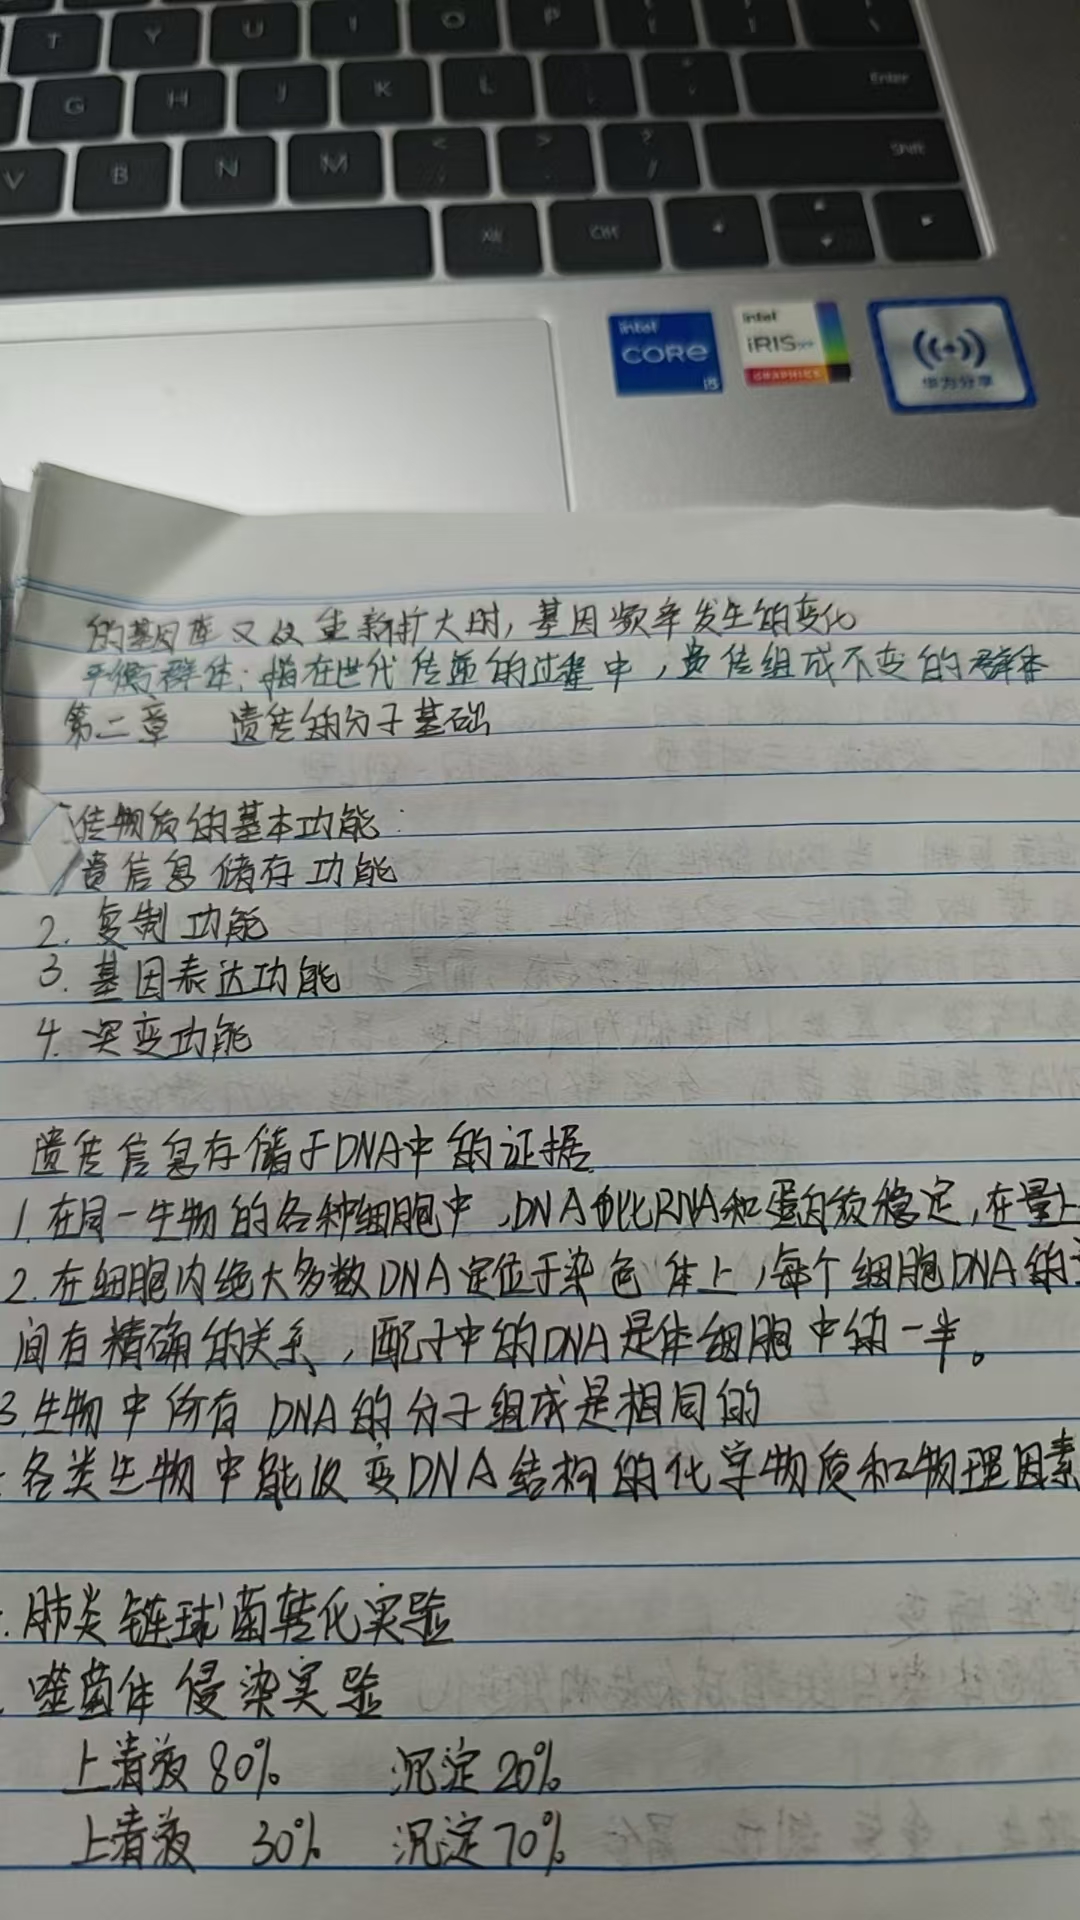 T Y U I O P
G H J K L Enter
V B N M < > ? / Shift
Alt Ctrl
intel CORE i5
intel iRIS Xe GRAPHICS
华为分享
的基因库又仅重新扩大时,基因频率发生的变化
平衡群体:指在世代传递的过程中,遗传组成不变的群体
第二章 遗传的分子基础
传物质的基本功能:
遗信息储存功能
2. 复制功能
3. 基因表达功能
4. 突变功能
遗传信息存储于DNA中的证据
1. 在同一生物的各种细胞中,DNA中比RNA和蛋白质稳定,在量上
2. 在细胞内绝大多数DNA定位于染色体上,每个细胞DNA的
间有精确的关系,配子中的DNA是体细胞中的一半。
3. 生物中所有DNA的分子组成是相同的
各类生物中能改变DNA结构的化学物质和物理因素
肺炎链球菌转化实验
噬菌体侵染实验
上清液80% 沉淀20%
上清液 30% 沉淀70%